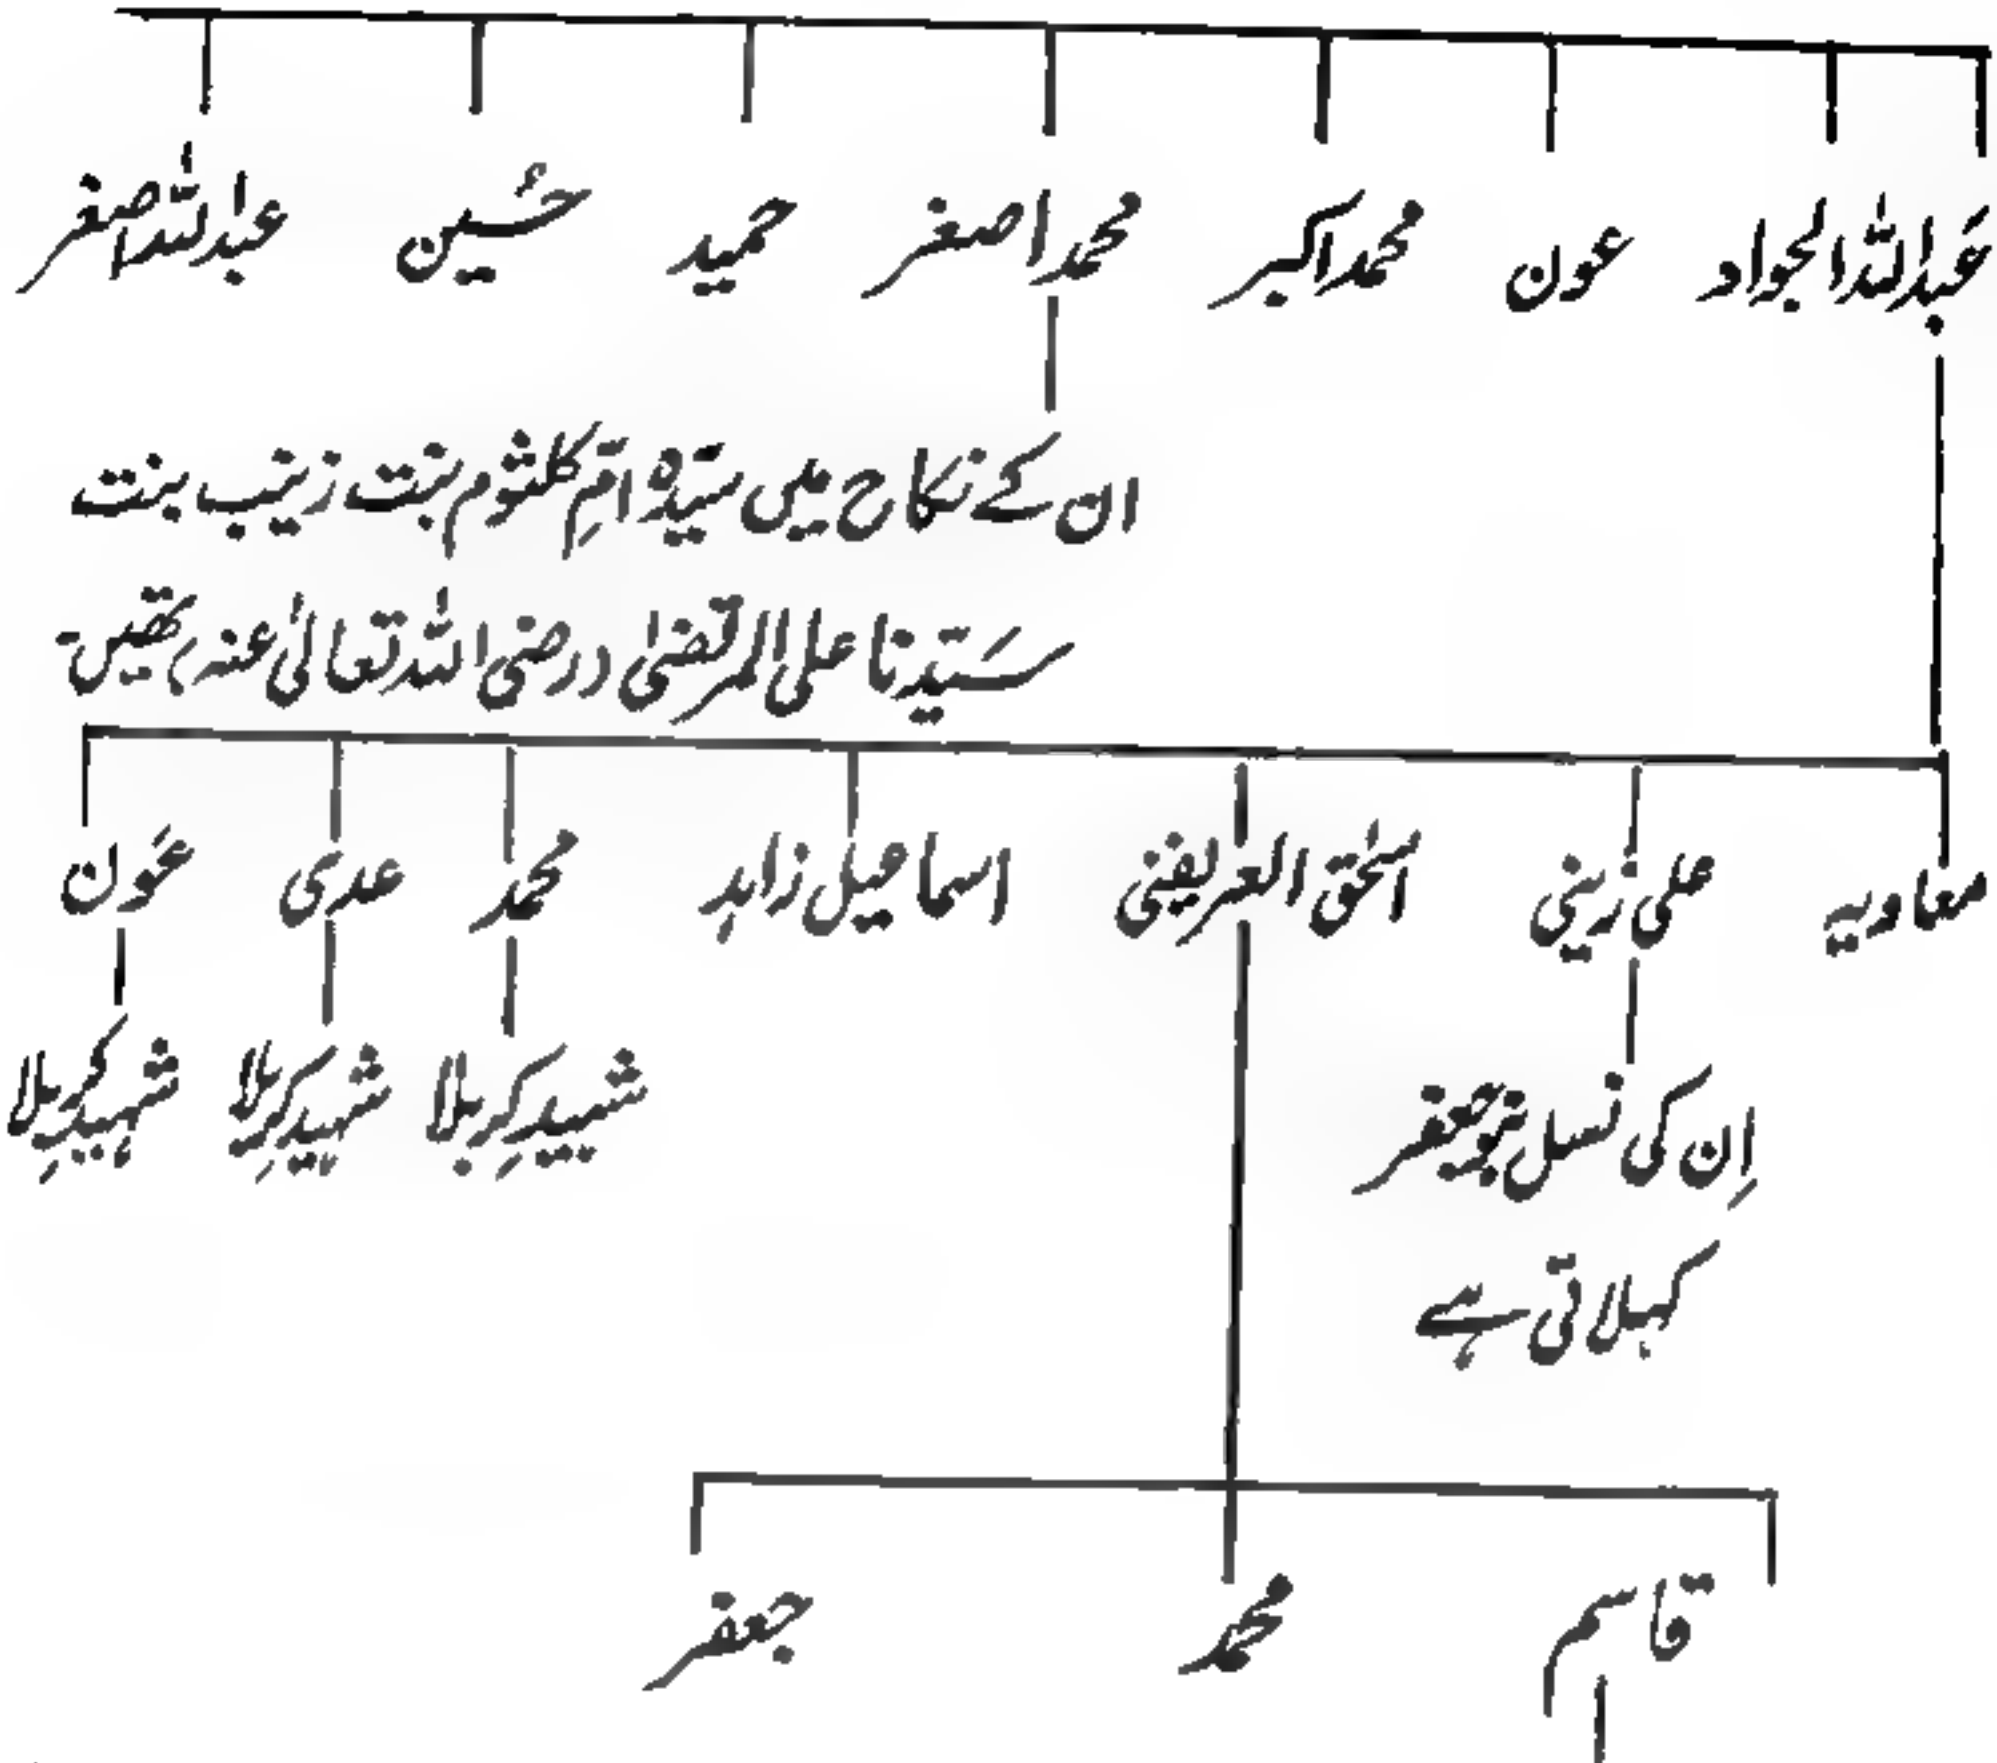 عبداللہ الجواد عون محمد اکبر محمد اصغر حمید حسین عبداللہ اصغر
ان کے نکاح میں سیّدہ امِّ کلثوم بنت زینب بنت
سَیّدنا علی المرتضیٰ (رضی اللہ تعالیٰ عنہ) تھیں۔
معاویہ علی زینی اسحٰق العریضی اسماعیل زاہد محمد عدی عَون
اِن کی نسل بنو جعفر
کہلاتی ہے
شہیدِ کربلا شہیدِ کربلا شہیدِ کربلا
قاسم محمد جعفر